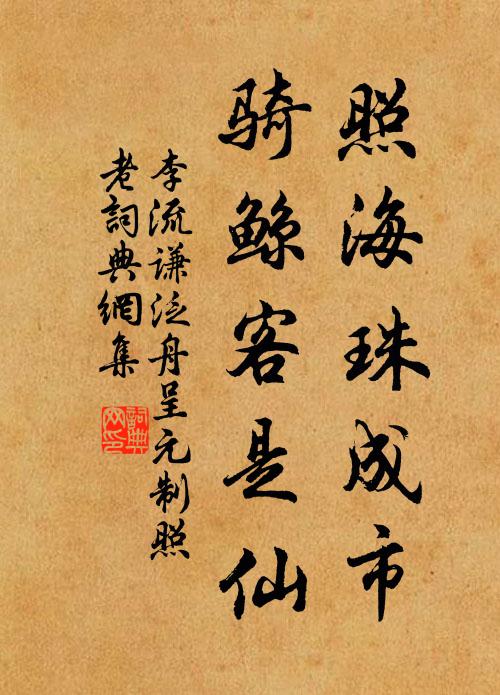 照海珠成市
骑鲸客是仙
李流谦泛舟呈元制照
老詞典網集
詞典
网印